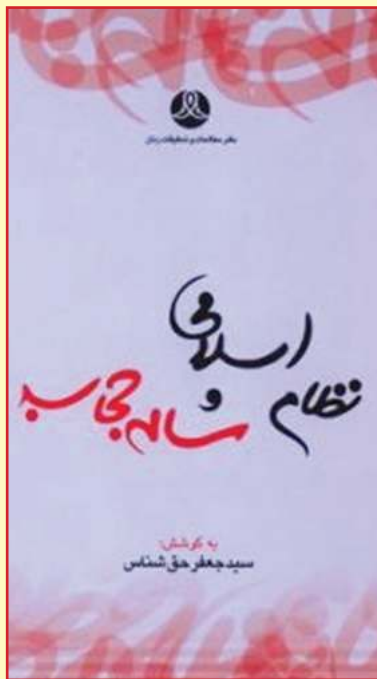 دفتر مطالعات و تحقیقات زنان
نظام اسلامی
و
مساله حجاب
به کوشش:
سیدجعفر حق شناس